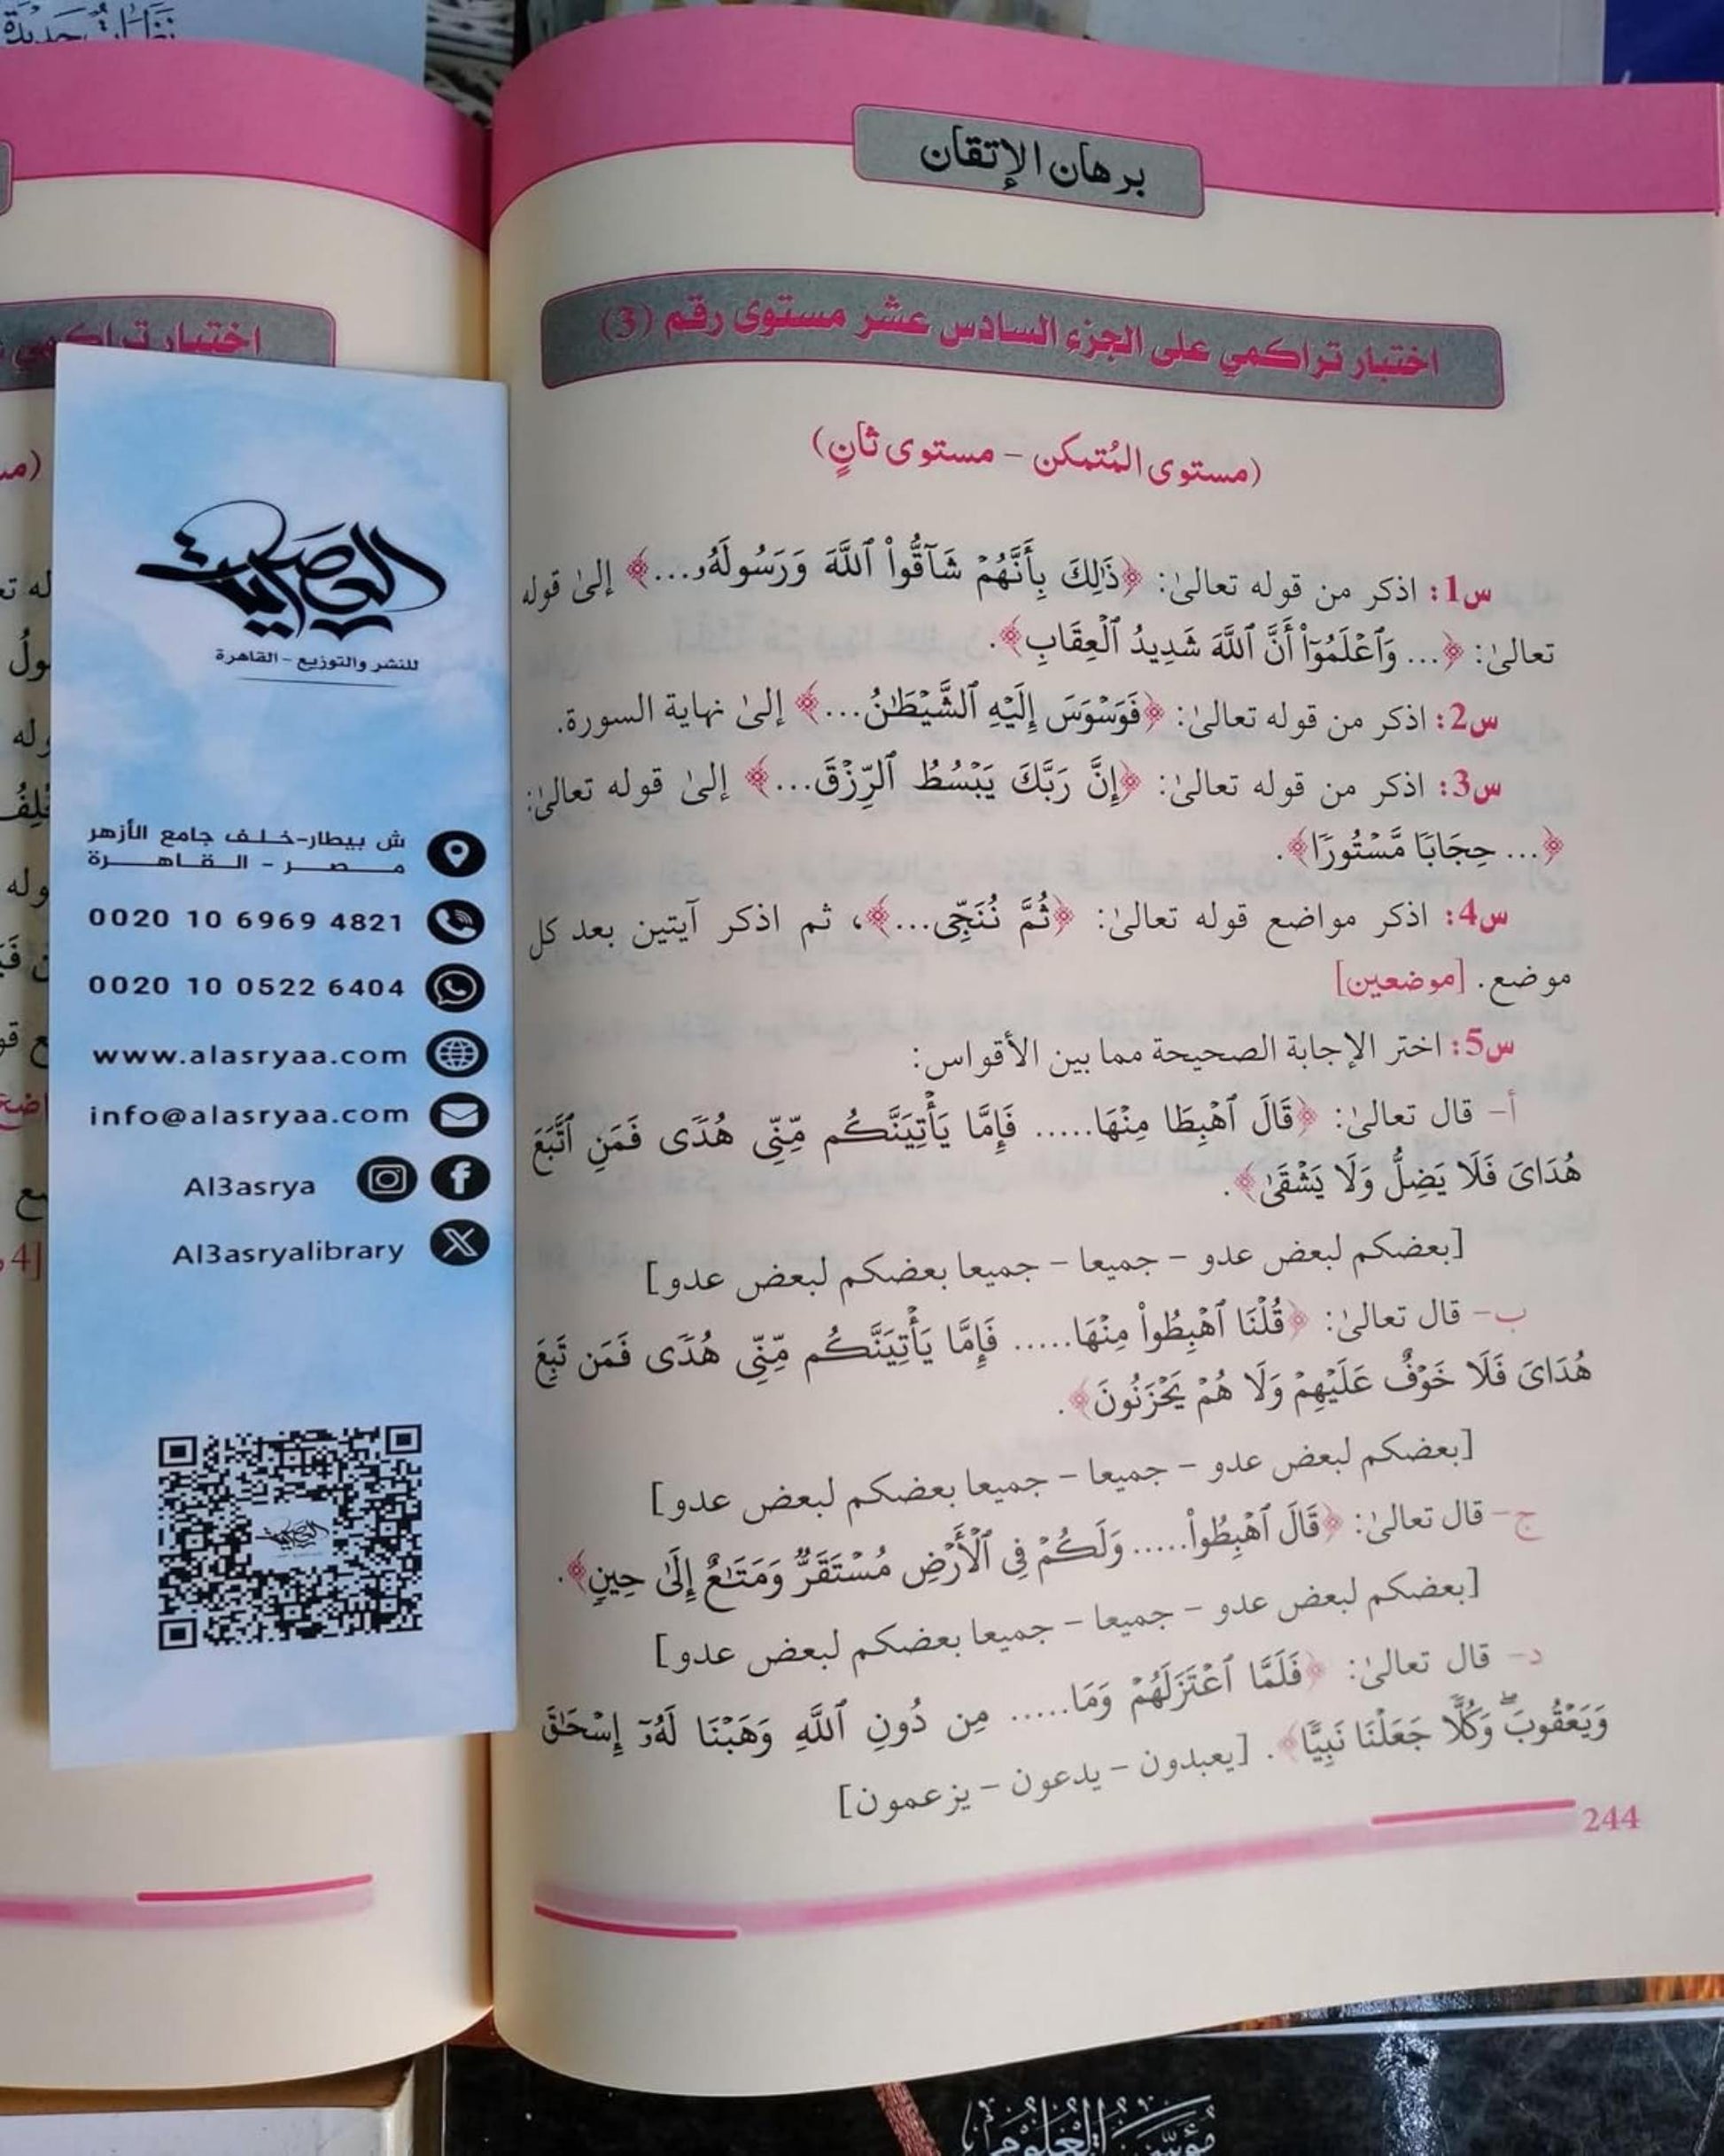 نظرات جديدة
برهان الإتقان
اختبار تراكمي على الجزء السادس عشر مستوى رقم (3)
(مستوى المُتمكن - مستوى ثانٍ)
س1: اذكر من قوله تعالىٰ: ﴿ذَٰلِكَ بِأَنَّهُمْ شَآقُّوا۟ ٱللَّهَ وَرَسُولَهُۥ...﴾ إلىٰ قوله
تعالىٰ: ﴿... وَٱعْلَمُوٓا۟ أَنَّ ٱللَّهَ شَدِيدُ ٱلْعِقَابِ﴾.
س2: اذكر من قوله تعالىٰ: ﴿فَوَسْوَسَ إِلَيْهِ ٱلشَّيْطَٰنُ...﴾ إلىٰ نهاية السورة.
س3: اذكر من قوله تعالىٰ: ﴿إِنَّ رَبَّكَ يَبْسُطُ ٱلرِّزْقَ...﴾ إلىٰ قوله تعالىٰ:
﴿... حِجَابًا مَّسْتُورًا﴾.
س4: اذكر مواضع قوله تعالىٰ: ﴿ثُمَّ نُنَجِّى...﴾، ثم اذكر آيتين بعد كل
موضع. [موضعين]
س5: اختر الإجابة الصحيحة مما بين الأقواس:
أ- قال تعالىٰ: ﴿قَالَ ٱهْبِطَا مِنْهَا..... فَإِمَّا يَأْتِيَنَّكُم مِّنِّى هُدًى فَمَنِ ٱتَّبَعَ
هُدَاىَ فَلَا يَضِلُّ وَلَا يَشْقَىٰ﴾.
[بعضكم لبعض عدو - جميعا - جميعا بعضكم لبعض عدو]
ب- قال تعالىٰ: ﴿قُلْنَا ٱهْبِطُوا۟ مِنْهَا..... فَإِمَّا يَأْتِيَنَّكُم مِّنِّى هُدًى فَمَن تَبِعَ
هُدَاىَ فَلَا خَوْفٌ عَلَيْهِمْ وَلَا هُمْ يَحْزَنُونَ﴾.
[بعضكم لبعض عدو - جميعا - جميعا بعضكم لبعض عدو]
ج- قال تعالىٰ: ﴿قَالَ ٱهْبِطُوا۟..... وَلَكُمْ فِى ٱلْأَرْضِ مُسْتَقَرٌّ وَمَتَٰعٌ إِلَىٰ حِينٍ﴾.
[بعضكم لبعض عدو - جميعا - جميعا بعضكم لبعض عدو]
د- قال تعالىٰ: ﴿فَلَمَّا ٱعْتَزَلَهُمْ وَمَا..... مِن دُونِ ٱللَّهِ وَهَبْنَا لَهُۥٓ إِسْحَٰقَ
وَيَعْقُوبَ ۖ وَكُلًّا جَعَلْنَا نَبِيًّا﴾. [يعبدون - يدعون - يزعمون]
244
اختبار تراكمي
العصرية
للنشر والتوزيع - القاهرة
ش بيطار-خلف جامع الأزهر
مصر - القاهرة
0020 10 6969 4821
0020 10 0522 6404
www.alasryaa.com
info@alasryaa.com
Al3asrya
Al3asryalibrary